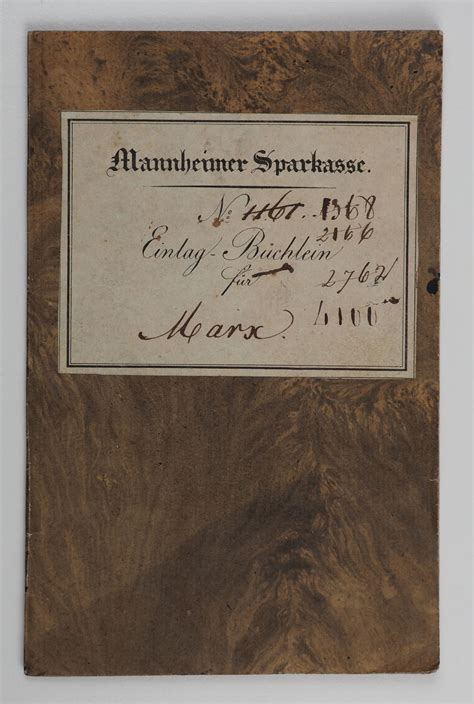 Mannheimer Sparkasse.
No: 1161. 1368
2166
Einlag-Büchlein
für 2762
Marx. 4100